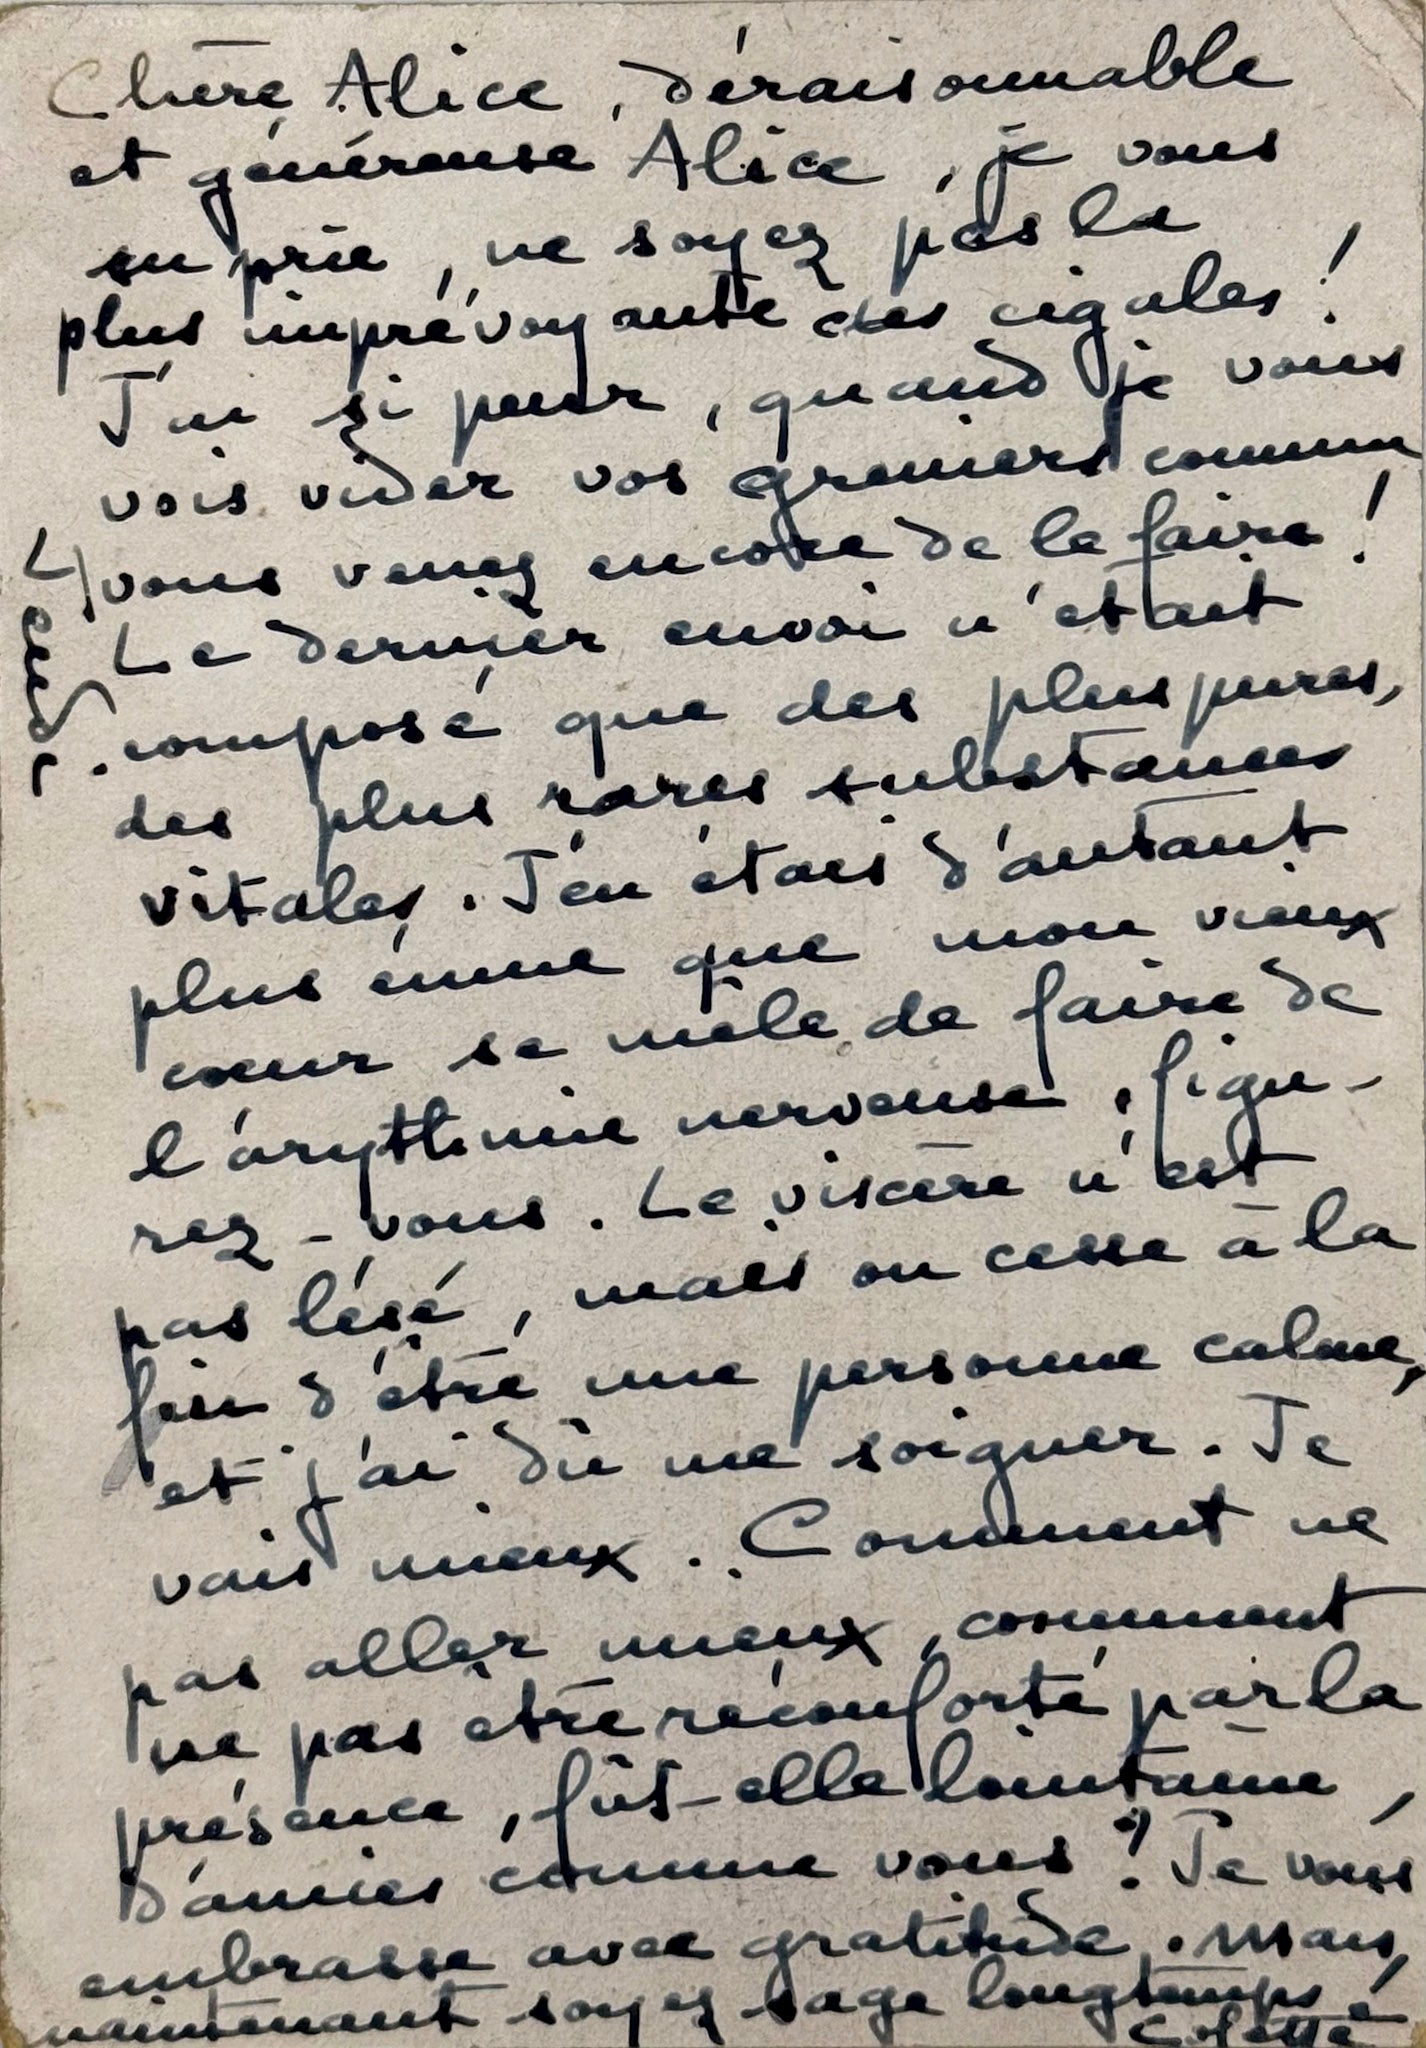 Chère Alice, déraisonnable
et généreuse Alice, je vous
en prie, ne soyez pas la
plus imprévoyante des cigales !
J'ai si peur, quand je vous
vois vider vos greniers comme
vous venez encore de le faire !
Le dernier envoi n'était
composé que des plus pures,
des plus rares substances
vitales. J'en étais d'autant
plus émue que mon vieux
cœur se mêle de faire de
l'arythmie nerveuse, figu-
rez-vous. Le viscère n'est
pas lésé, mais on cesse à la
fin d'être une personne calme,
et j'ai dû me soigner. Je
vais mieux. Comment ne
pas aller mieux, comment
ne pas être réconforté par la
présence, fût-elle lointaine,
d'amies comme vous ? Je vous
embrasse avec gratitude. Mais,
maintenant soyez sage longtemps !
Colette